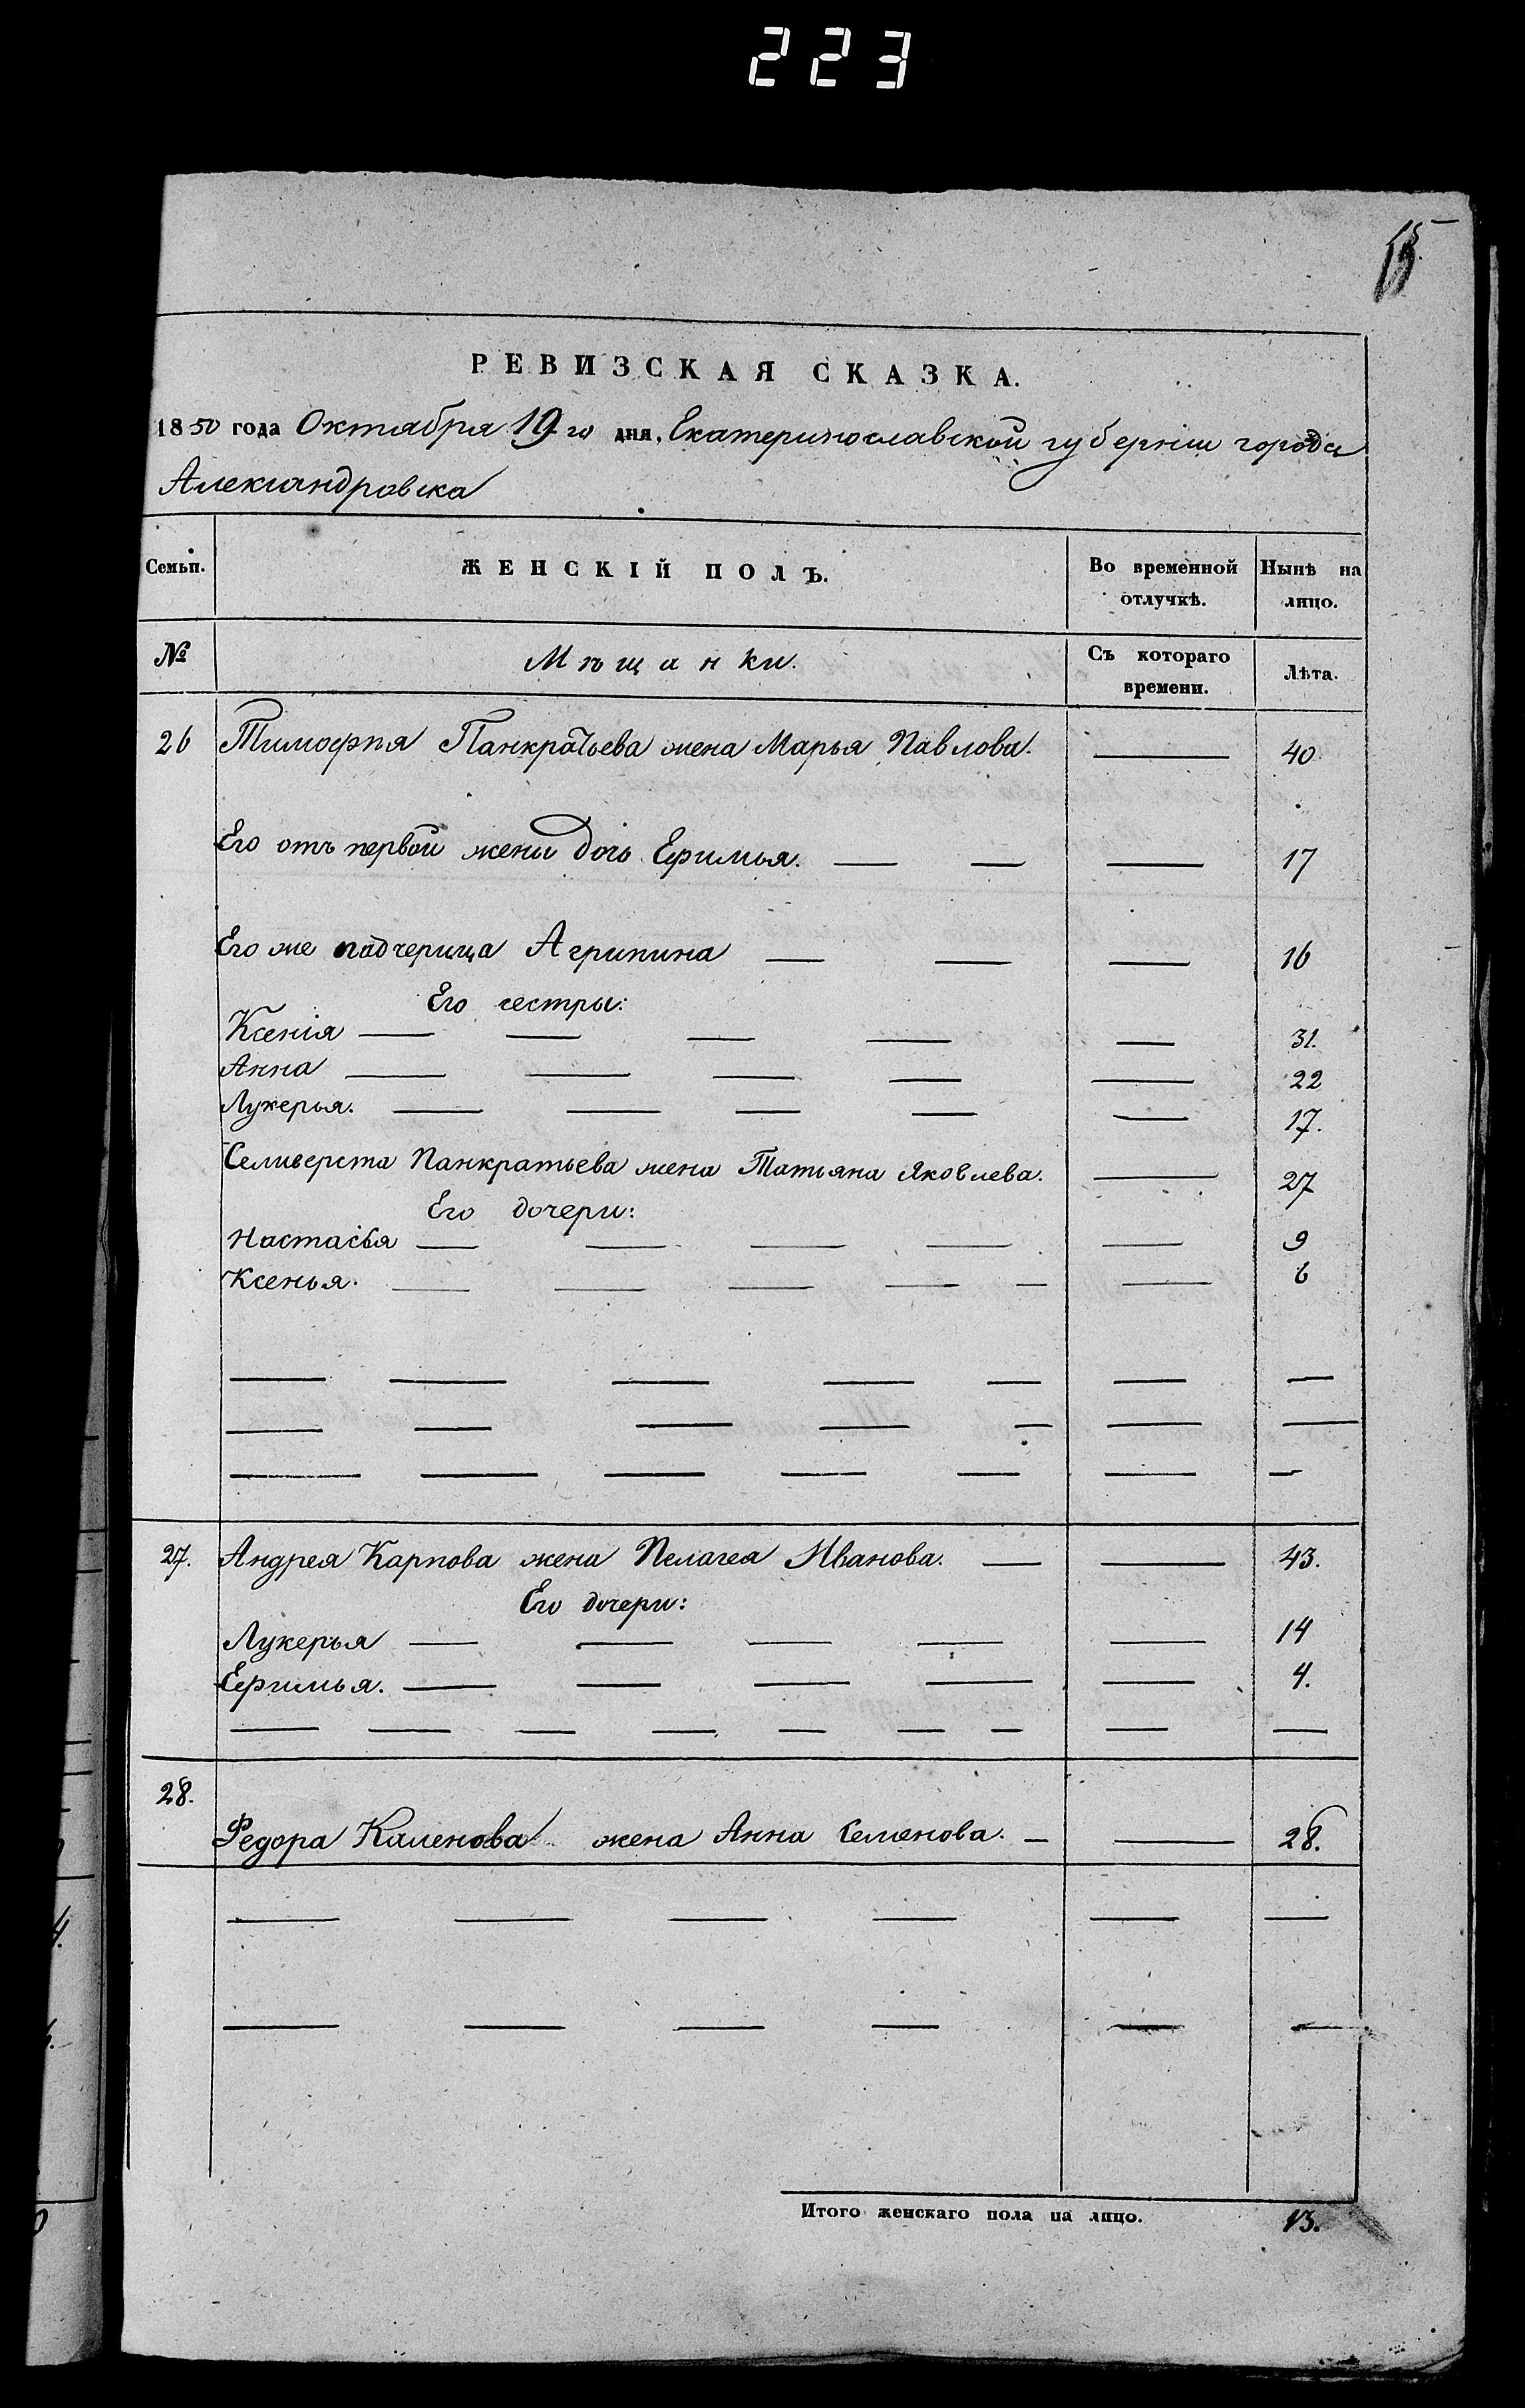 223
15
РЕВИЗСКАЯ СКАЗКА.
1850 года Октября 19го дня, Екатеринославской губерніи города
Александровска
Семьи. ЖЕНСКІЙ ПОЛЪ. Во временной отлучкѣ. Нынѣ на лицо.
№ Мѣщанки. Съ котораго времени. Лѣта.
26 Тимофѣя Панкратьева жена Марья Павлова. — 40
Его отъ первой жены дочь Ефимья. — — — 17
Его же падчерица Агрипина — — — 16
Его сестры:
Ксенія — — — — — 31.
Анна — — — — — 22
Лукерья. — — — — — 17.
Селиверста Панкратьева жена Татьяна Яковлева. — 27
Его дочери:
Настасья — — — — — 9
Ксенья. — — — — — — 6
— — — — — — —
— — — — — — —
— — — — — — —
27. Андрея Карпова жена Пелагея Иванова. — — 43.
Его дочери:
Лукерья — — — — — 14
Ефимья. — — — — — 4.
— — — — — — — — —
28.
Федора Каленова жена Анна Семенова. — — 28.
— — — — — —
— — — — — —
Итого женскаго пола на лицо. 13.